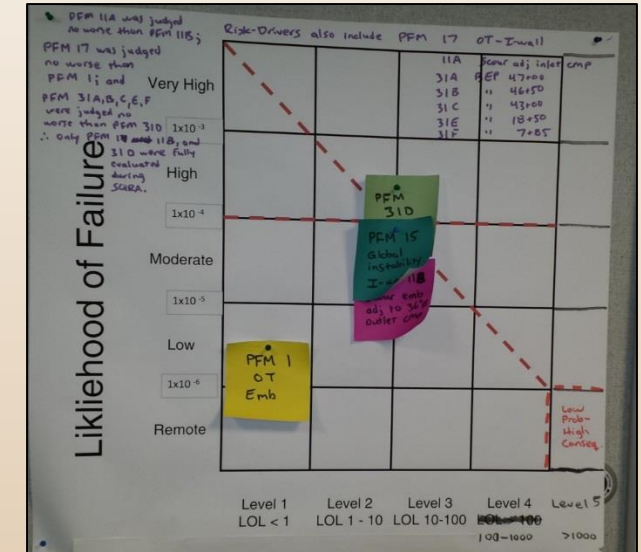 PFM 11A was judged
no worse than PFM 11B;
PFM 17 was judged
no worse than
PFM 1; and
PFM 31A,B,C,E,F
were judged no
worse than PFM 31D
∴ only PFM 11B, and
31D were fully
evaluated
during
SQRA.
Risk-Drivers also include PFM 17 OT-I-wall
11A Scour adj inlet cmp
31A BEP 47+00
31B " 46+50
31C " 43+00
31E " 18+50
31F " 7+85
Likliehood of Failure
Very High
1x10 -3
High
1x10 -4
Moderate
1x10 -5
Low
1x10 -6
Remote
PFM
31D
PFM 15
Global
instability
I-wall
11B
Scour emb
adj to 36"
outlet cmp
PFM 1
OT
Emb
Low
Prob-
High
Conseq.
Level 1 Level 2 Level 3 Level 4 Level 5
LOL < 1 LOL 1 - 10 LOL 10-100 LOL > 100
100-1000 >1000